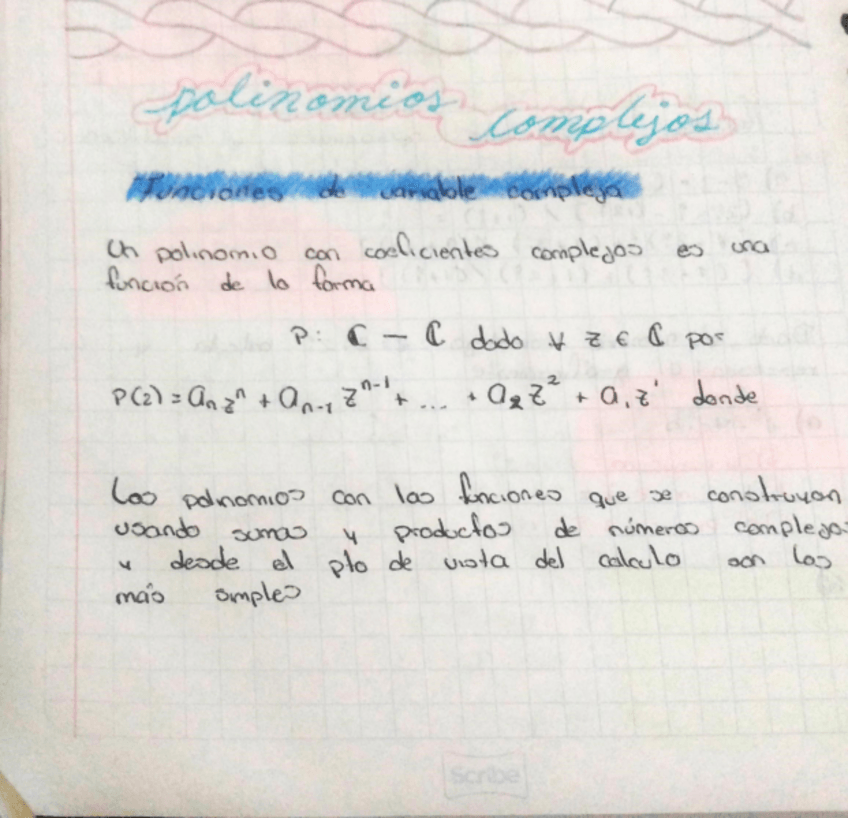 polinomios complejos
Funciones de variable compleja
Un polinomio con coeficientes complejos es una
función de la forma
P: ℂ — ℂ dado ∀ z ∈ ℂ por
P(z) = aₙzⁿ + aₙ₋₁ zⁿ⁻¹ + ... + a₂z² + a₁z¹ donde
Los polinomios con las funciones que se construyan
usando sumas y productos de números complejos
y desde el pto de vista del calculo son los
más simples
Scribe